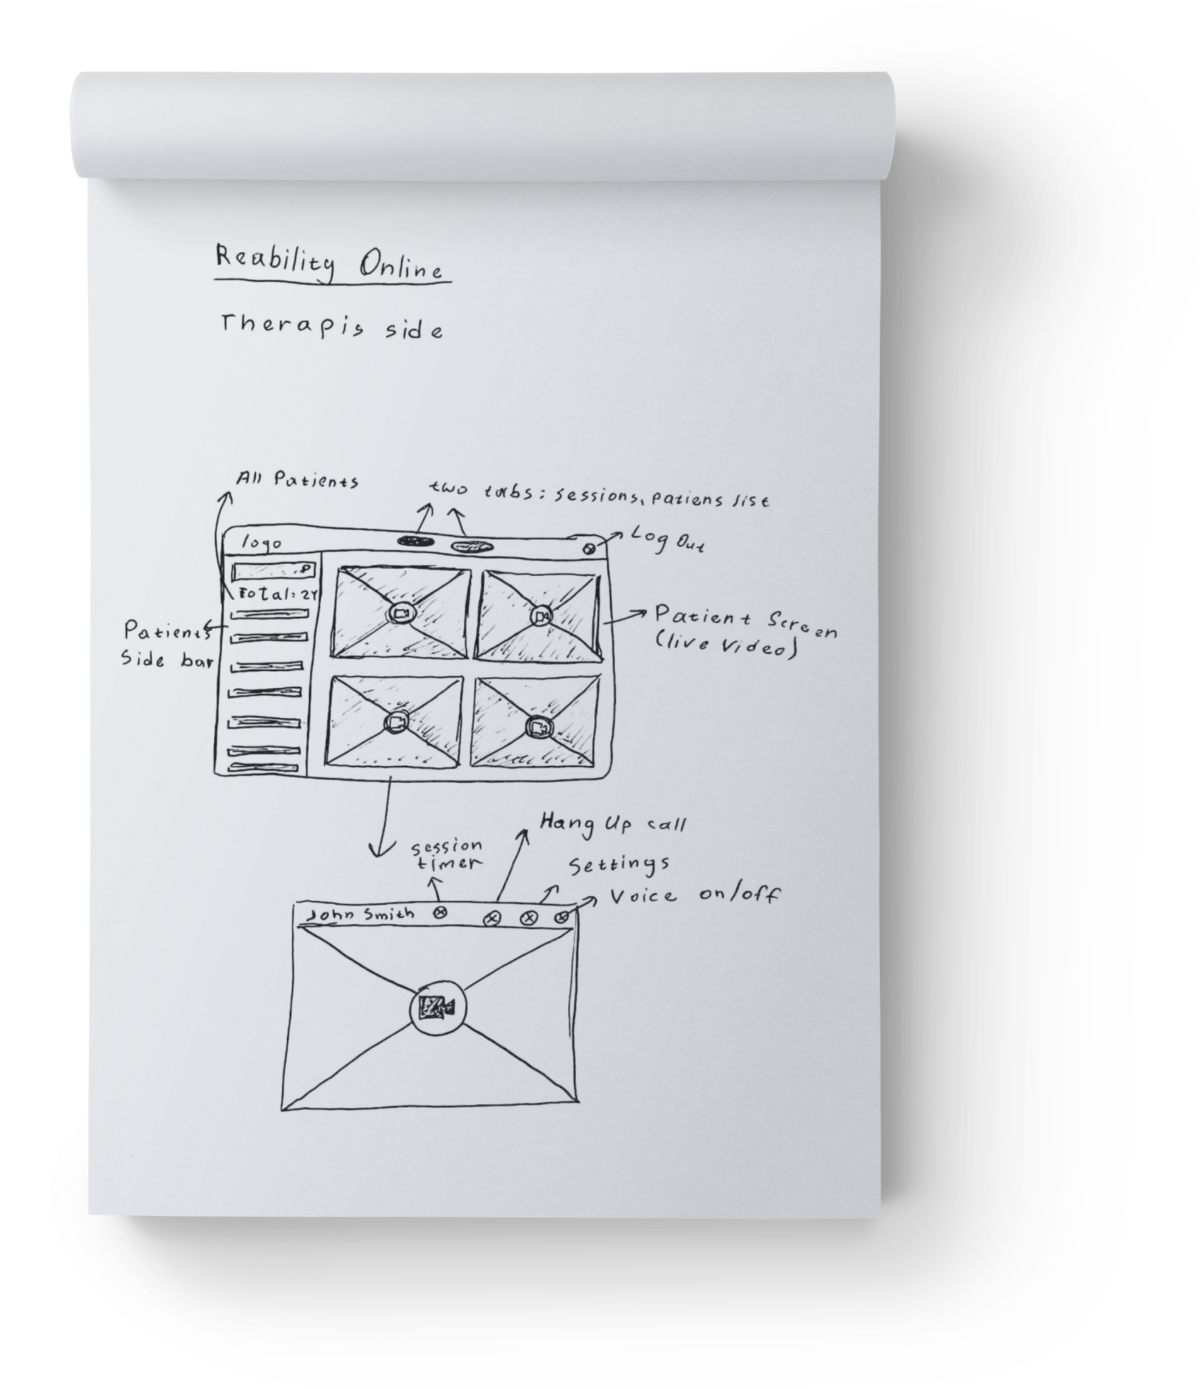 Reability Online
Therapis side
All Patients
two tabs: sessions, patiens list
logo
Log Out
Total: 24
Patients
Side bar
Patient Screen
(live Video)
Hang Up call
session
timer
Settings
Voice on/off
John Smith